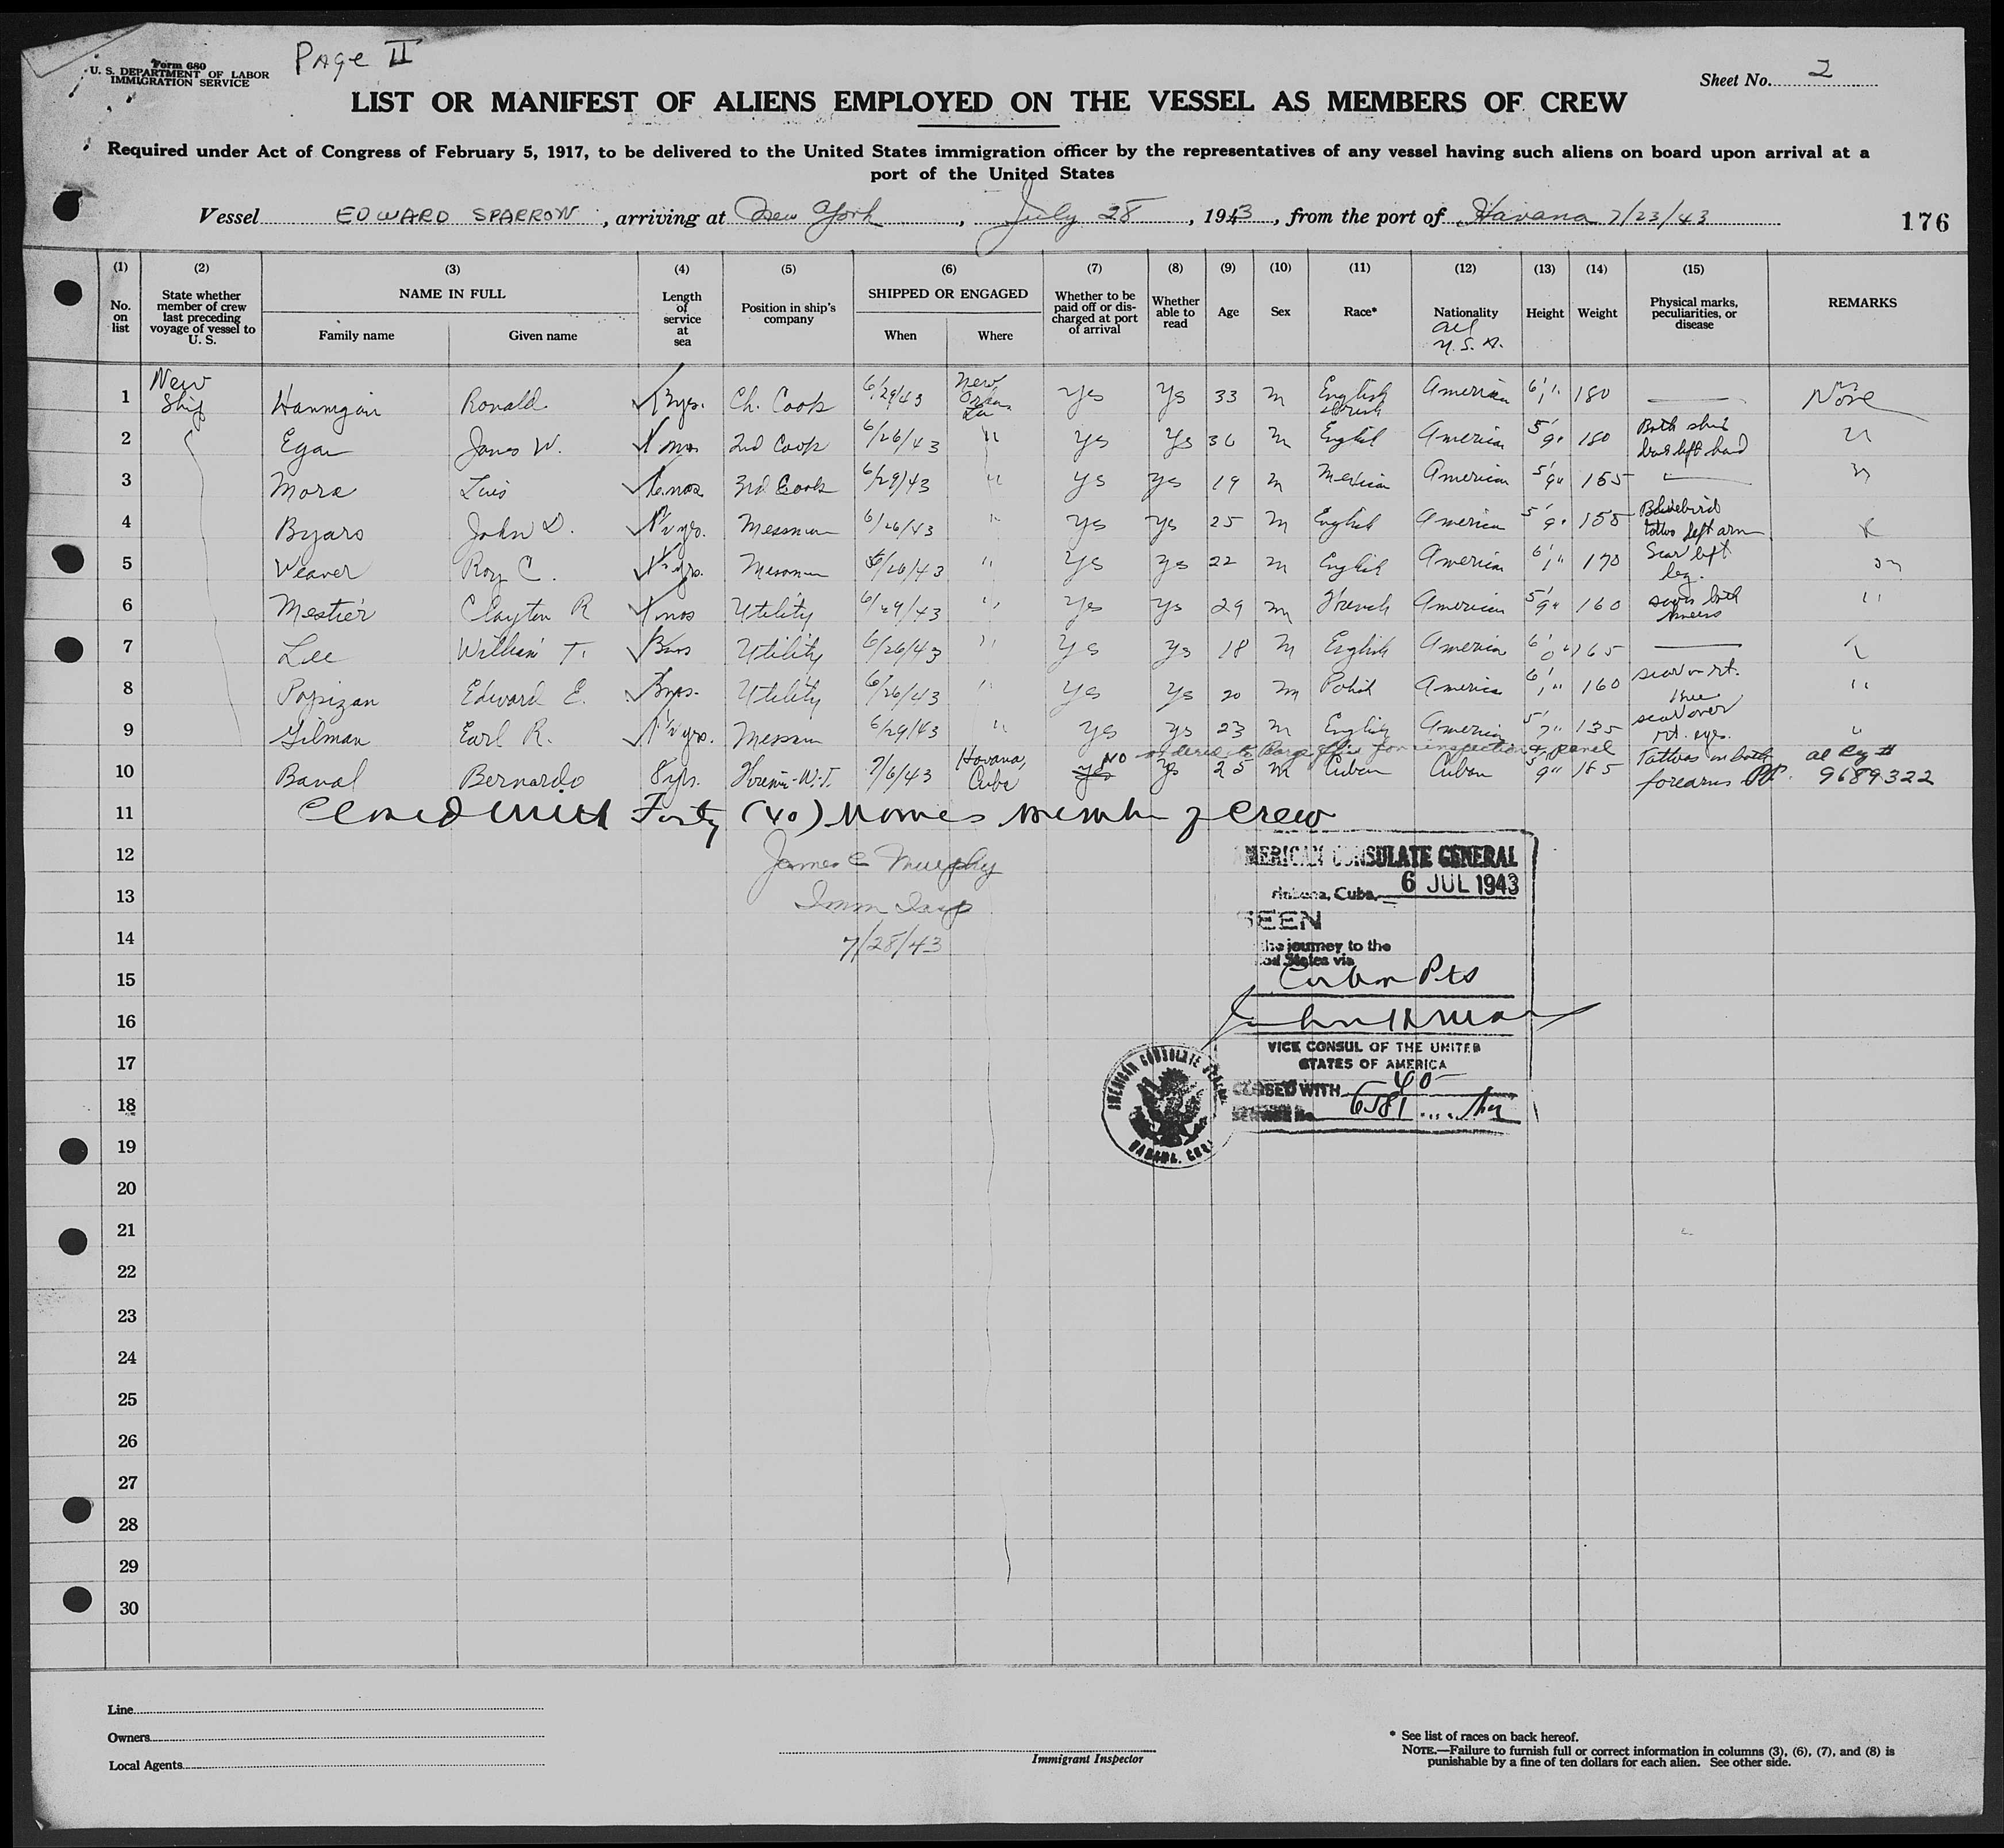 Form 680
U. S. DEPARTMENT OF LABOR
IMMIGRATION SERVICE
Page II
Sheet No. 2
LIST OR MANIFEST OF ALIENS EMPLOYED ON THE VESSEL AS MEMBERS OF CREW
Required under Act of Congress of February 5, 1917, to be delivered to the United States immigration officer by the representatives of any vessel having such aliens on board upon arrival at a
port of the United States
Vessel EDWARD SPARROW, arriving at New York, July 28, 1943, from the port of Havana 7/23/43
176
(1) (2) (3) (4) (5) (6) (7) (8) (9) (10) (11) (12) (13) (14) (15)
No. on list
State whether member of crew last preceding voyage of vessel to U. S.
NAME IN FULL
Family name Given name
Length of service at sea
Position in ship's company
SHIPPED OR ENGAGED
When Where
Whether to be paid off or discharged at port of arrival
Whether able to read
Age
Sex
Race*
Nationality
all U.S.A.
Height
Weight
Physical marks, peculiarities, or disease
REMARKS
1 New Ship Hannigan Ronald 3 yrs. Ch. Cook 6/29/43 New Yes Yes 33 M English American 6'1" 180 — None
2 Egan James W. mos 2nd Cook 6/26/43 " Yes Yes 36 M English American 5'9" 180 left hand "
3 Mora Luis 6 mos 3rd Cook 6/29/43 " Yes Yes 19 M Mexican American 5'9" 155 — "
4 Byars John D. 1½ yrs. Messman 6/26/43 " Yes Yes 25 M English American 5'9" 155 Bluebird tattoo left arm "
5 Weaver Roy C. yrs. Messman 6/26/43 " Yes Yes 22 M English American 6'1" 170 Scar left leg. "
6 Mestier Clayton R mos Utility 6/29/43 " Yes Yes 29 M French American 5'9" 160 scars both knees "
7 Lee William T. Utility 6/26/43 " Yes Yes 18 M English American 6'0" 165 — "
8 Popizan Edward E. mos. Utility 6/26/43 " Yes Yes 20 M Polish American 6'1" 160 scar on rt. knee "
9 Gilman Earl R. 1½ yrs. Messman 6/29/43 " Yes Yes 23 M English American 5'7" 135 scar over rt. eye. "
NO ordered to Barge Office for inspection & parole
10 Baval Bernardo 8 yrs. Fireman-W.T. 7/6/43 Havana, Cuba Yes Yes 25 M Cuban Cuban 5'9" 165 Tattoos on both forearms PP. al Reg # 9689322
11 Closed with Forty (40) Names Member of Crew
12 James C Murphy
13 Imm Insp
14 7/28/43
15
16
17
18
19
20
21
22
23
24
25
26
27
28
29
30
AMERICAN CONSULATE GENERAL
Habana, Cuba, 6 JUL 1943
SEEN
the journey to the
United States via
Cuban Pts
VICE CONSUL OF THE UNITED
STATES OF AMERICA
CLOSED WITH 40
6581
AMERICAN CONSULATE GENERAL
HABANA, CUBA
Line
Owners
Local Agents
Immigrant Inspector
* See list of races on back hereof.
NOTE.—Failure to furnish full or correct information in columns (3), (6), (7), and (8) is
punishable by a fine of ten dollars for each alien. See other side.